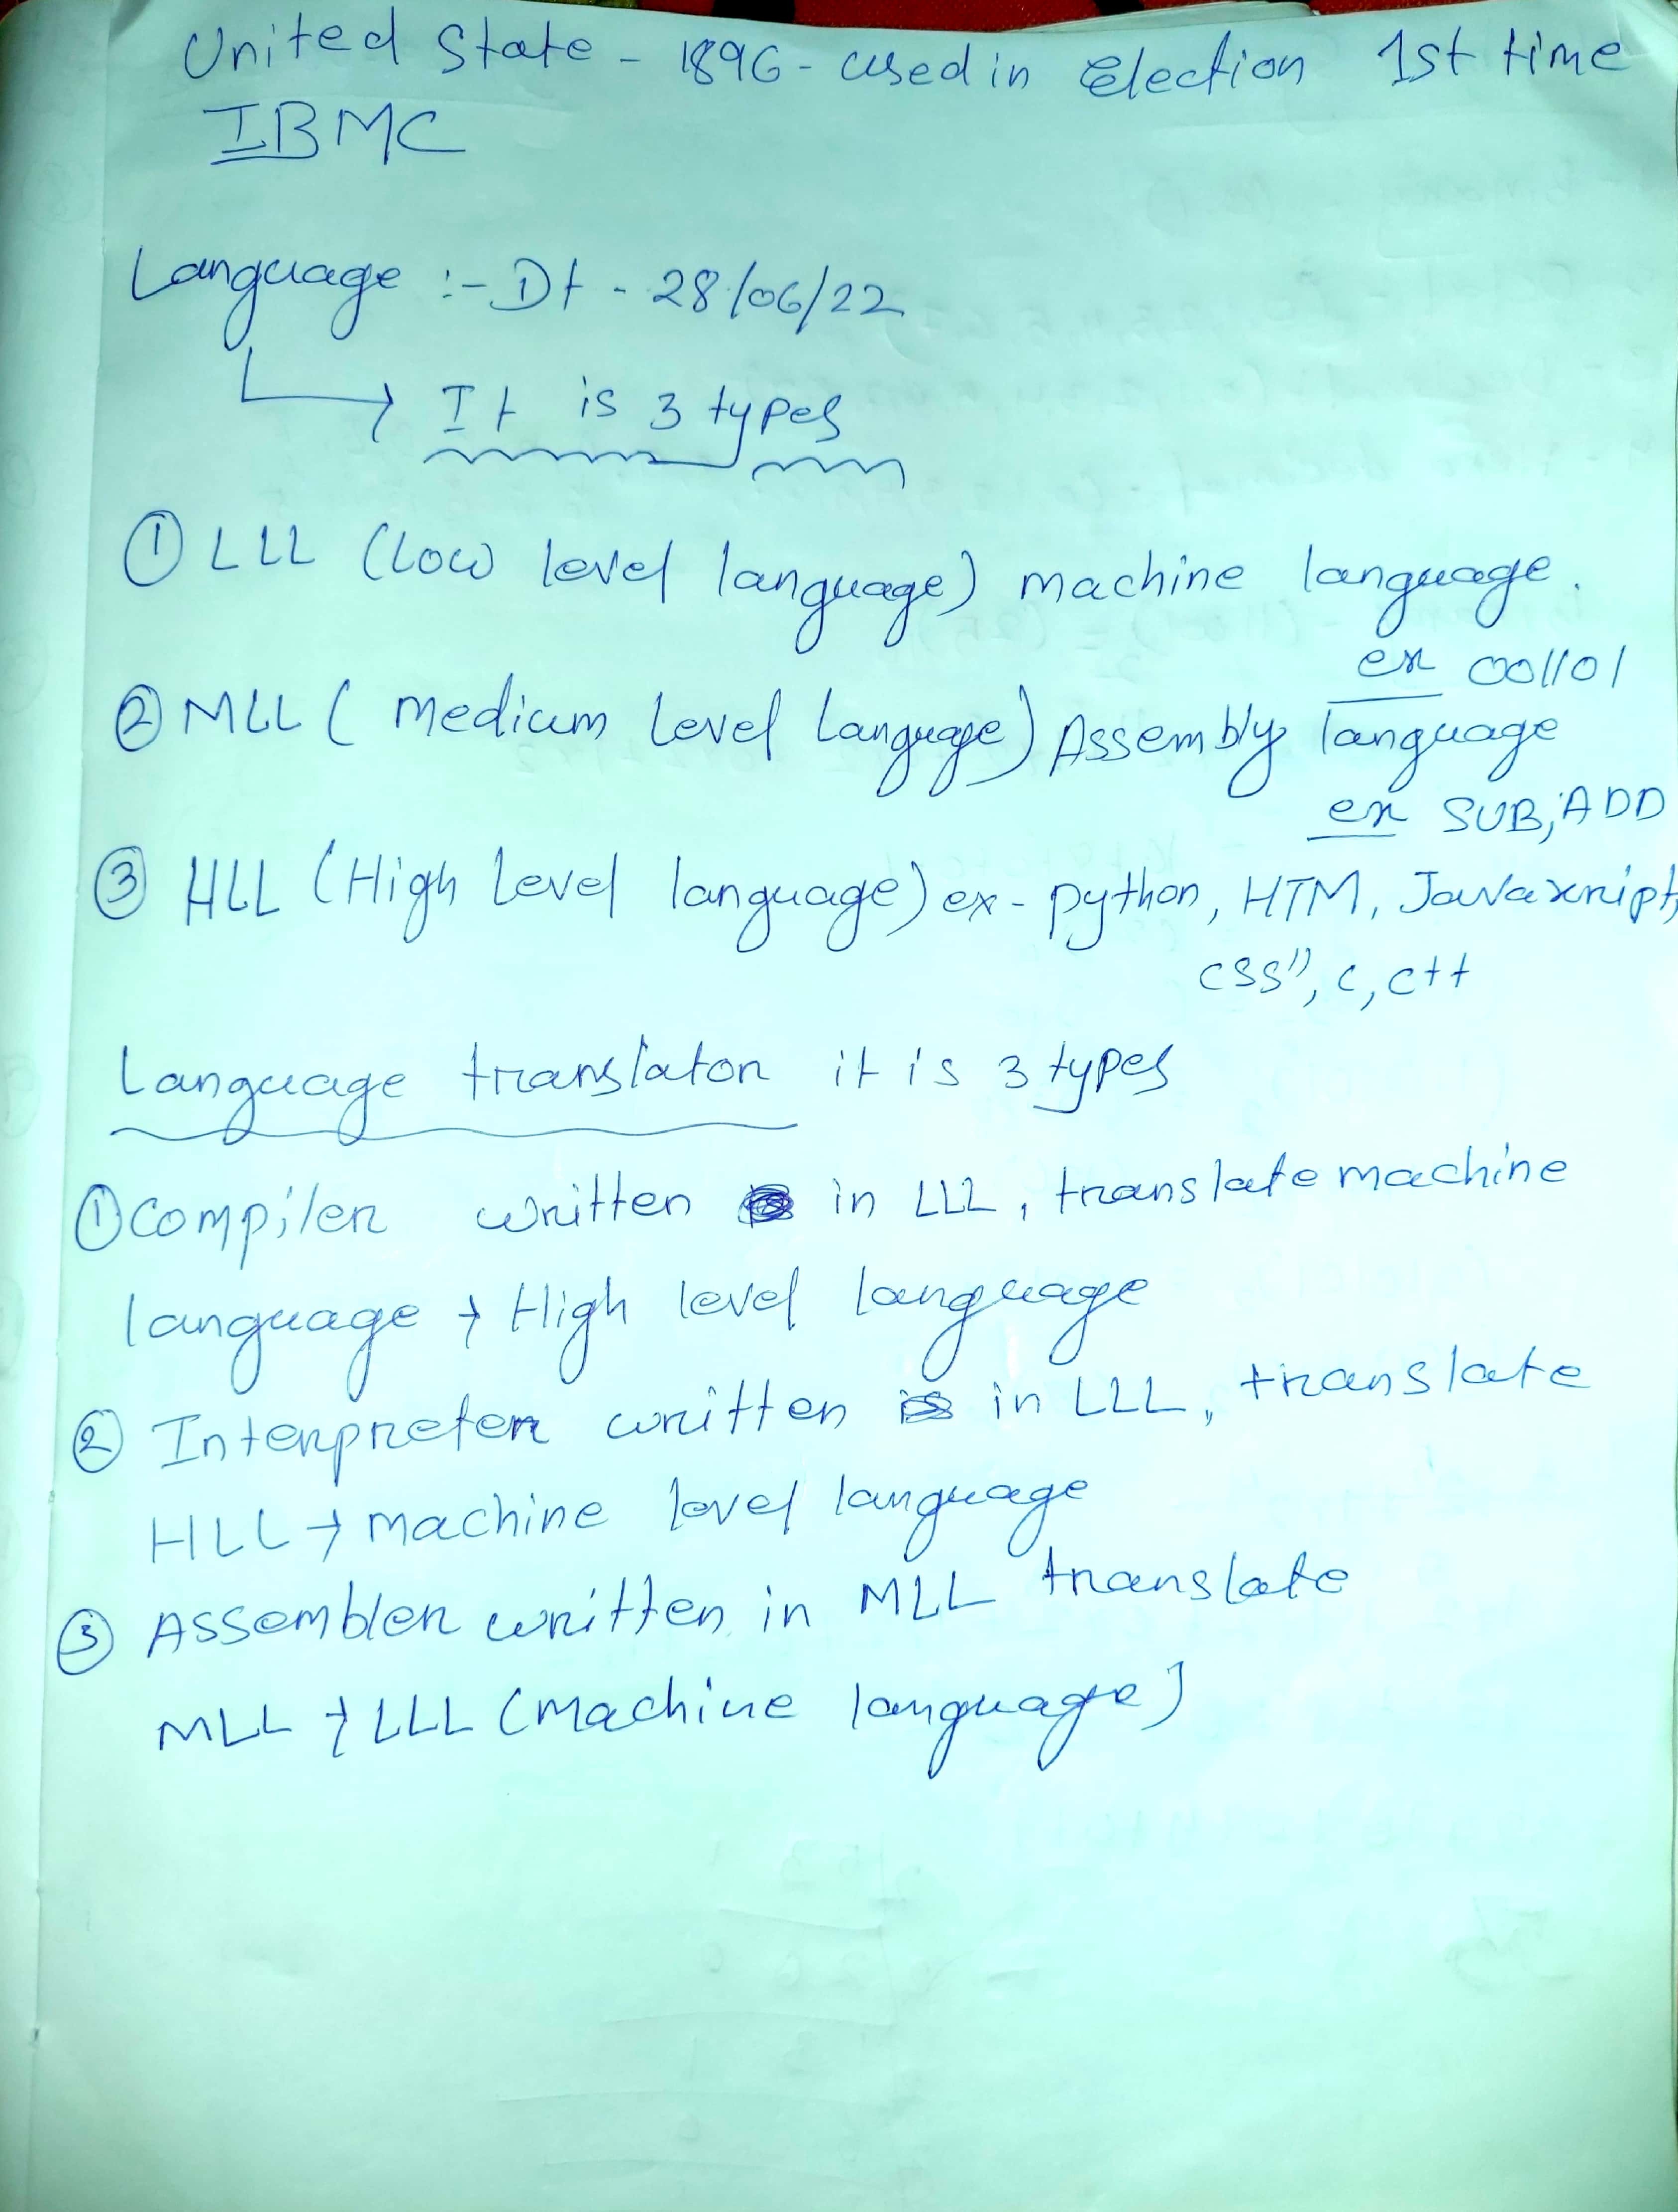 United State - 1896 - used in Election 1st time
IBMC
Language :- Dt - 28/06/22
It is 3 types
① LLL (Low level language) machine language.
ex 001101
② MLL ( medium level Language) Assembly language
ex SUB, ADD
③ HLL (High Level language) ex - python, HTM, Javaxript,
css", c, c++
Language translator it is 3 types
① compiler written in LLL, translate machine
language → High level language
② Interpreter written is in LLL, translate
HLL → machine level language
③ Assembler written in MLL translate
MLL → LLL (Machine language)